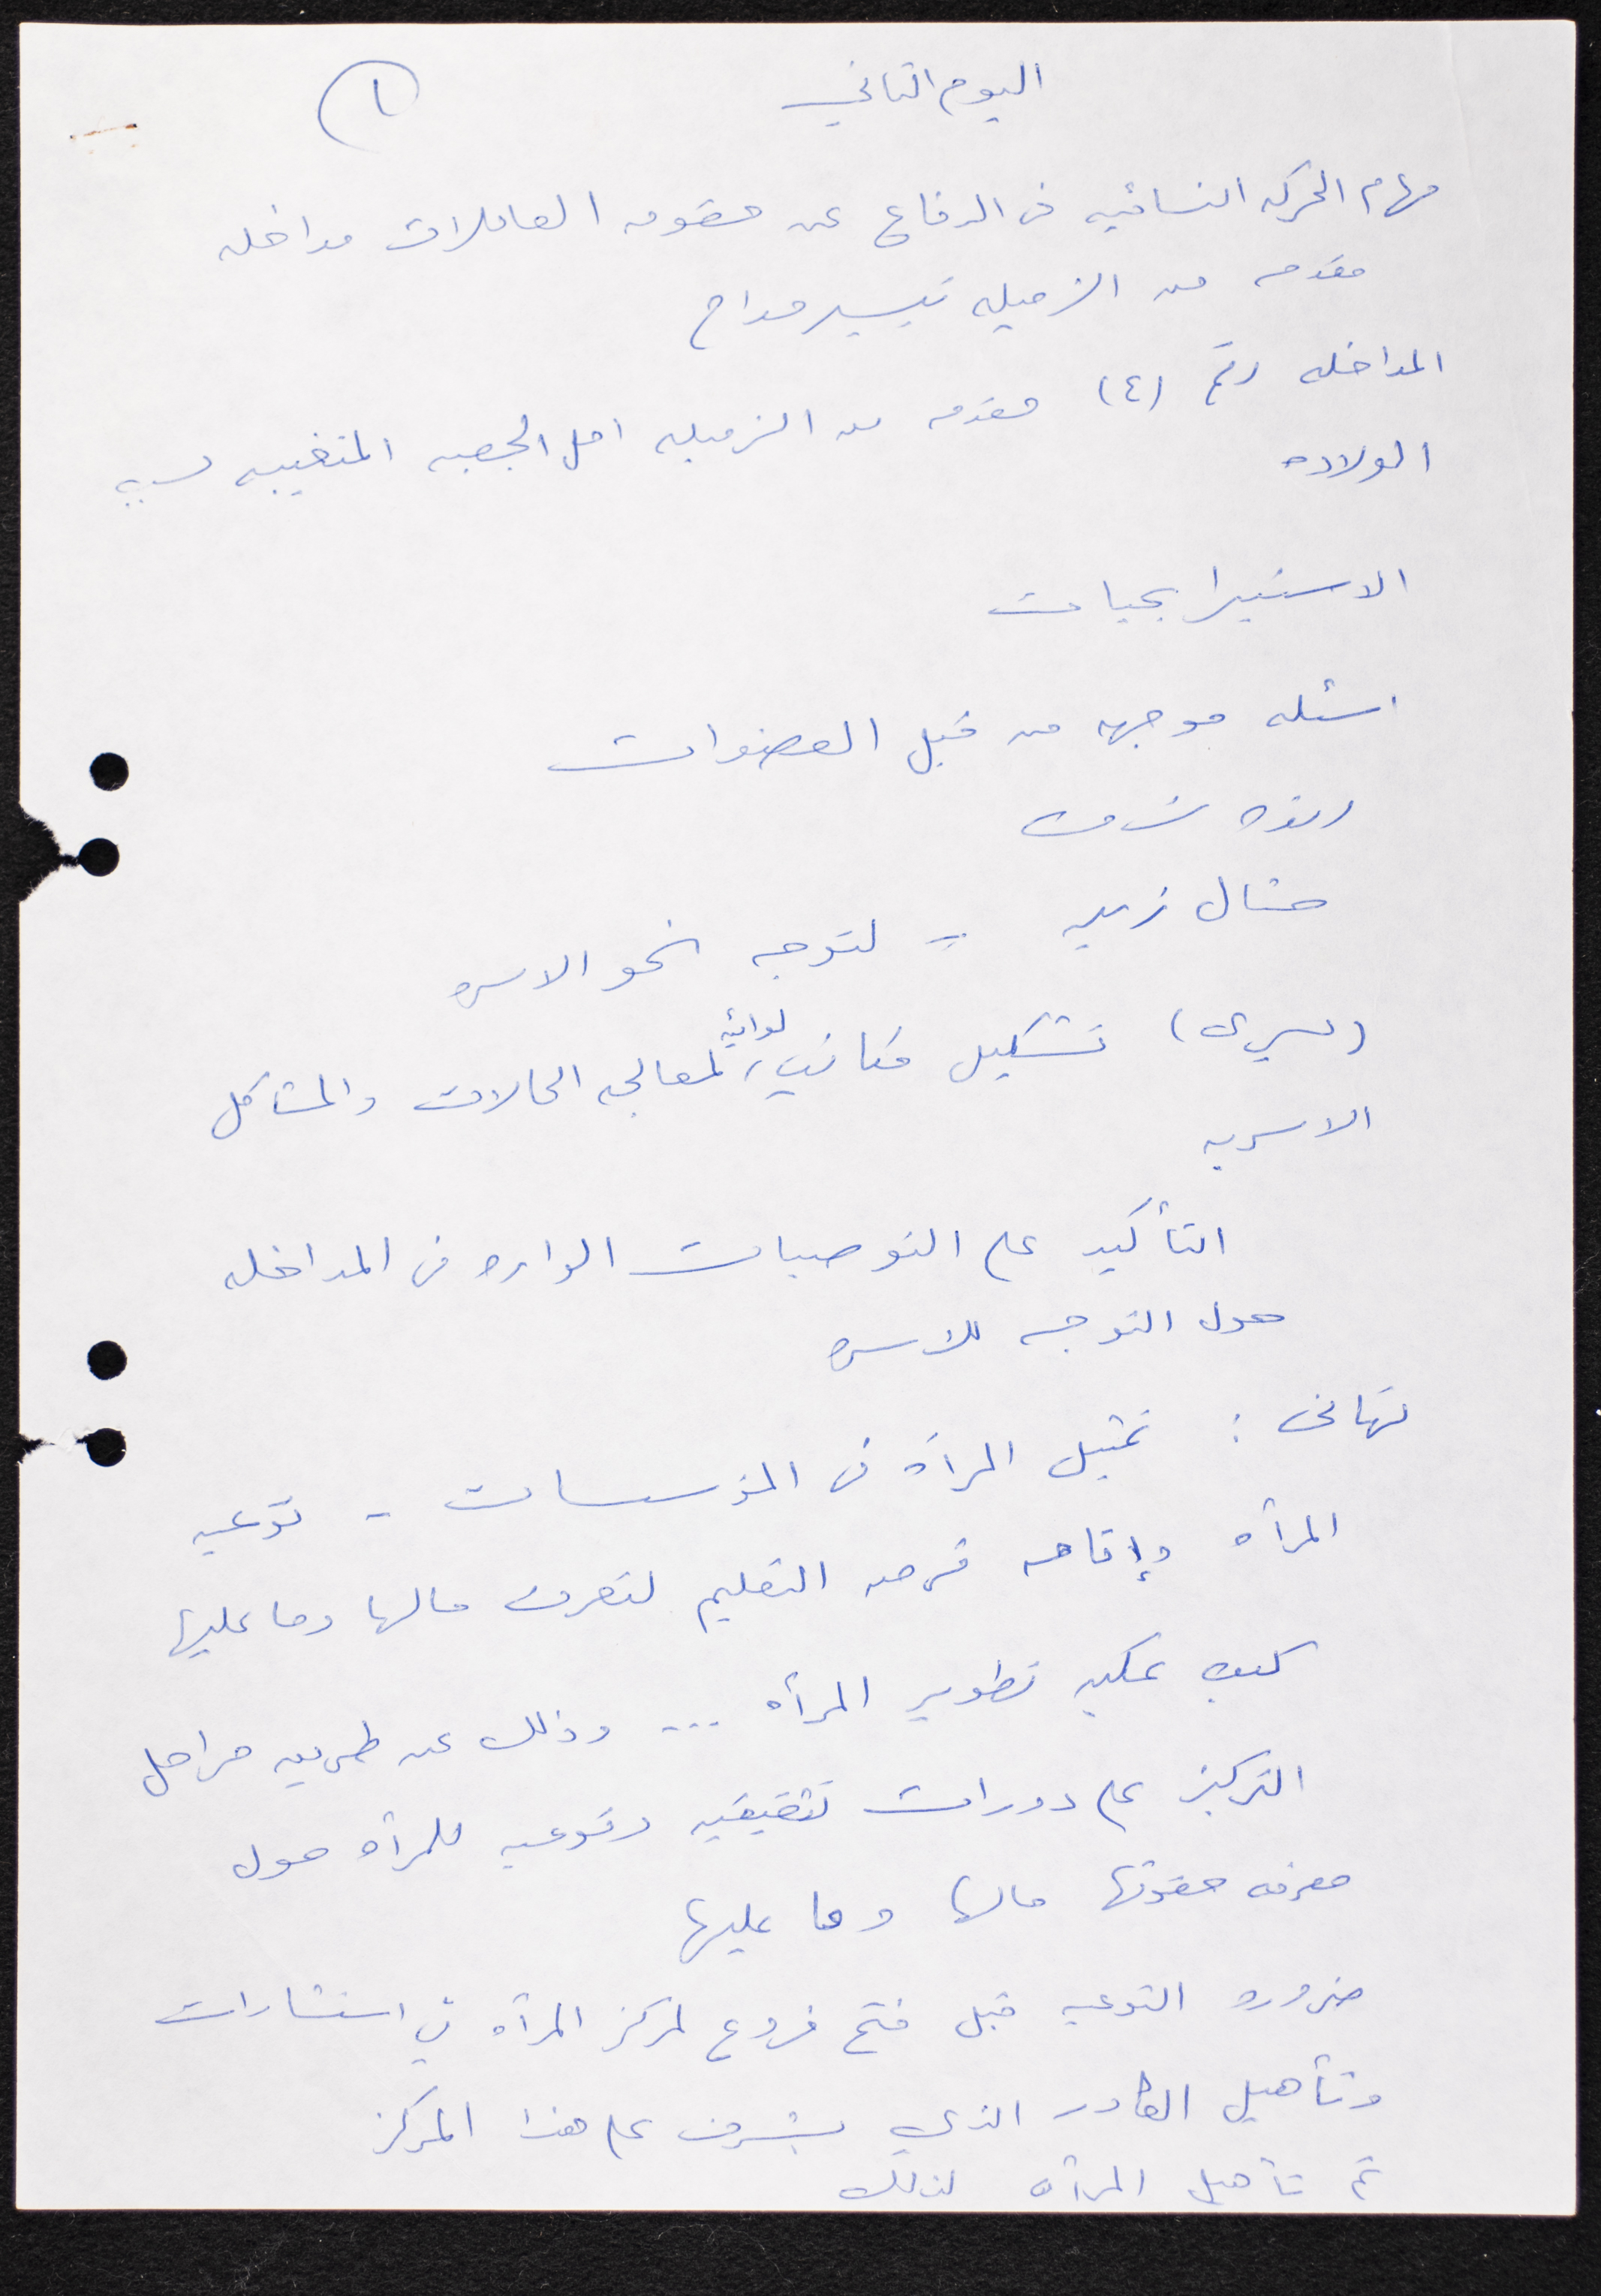 اليوم الثاني
١
مهام الحركه النسائيه في الدفاع عن حقوق العاملات مداخله
مقدمه من الزميله تيسير مداح
المداخله رقم (٤) مقدمه من الزميله امل الجعبه المتغيبه بسبب
الولاده
الاستيراتجيات
اسئله موجهه من قبل العضوات
رنده
منال زيد - لتوجه نحو الاسره
(يسرى) تشكيل لوائيه لمعالجه الحالات والمشاكل
الاسريه
التأكيد على التوصيات الوارده في المداخله
حول التوجه للاسره
تهانى : تمثيل المرأه في المؤسسات - توعيه
المرأه وإتاحه فرصه التعليم لتعرف مالها وما عليها
كيف يمكن تطوير المرأه ... وذلك عن طريق مراحل
التركيز على دورات تثقيفيه وتوعيه للمرأه حول
معرفه حقوقها مالها وما عليها
ضروره التوعيه قبل فتح فروع لمركز المرأه في استشارات
وتأهيل الكادر الذي يشرف على هذا المركز
ثم تأهيل المرأه لذلك